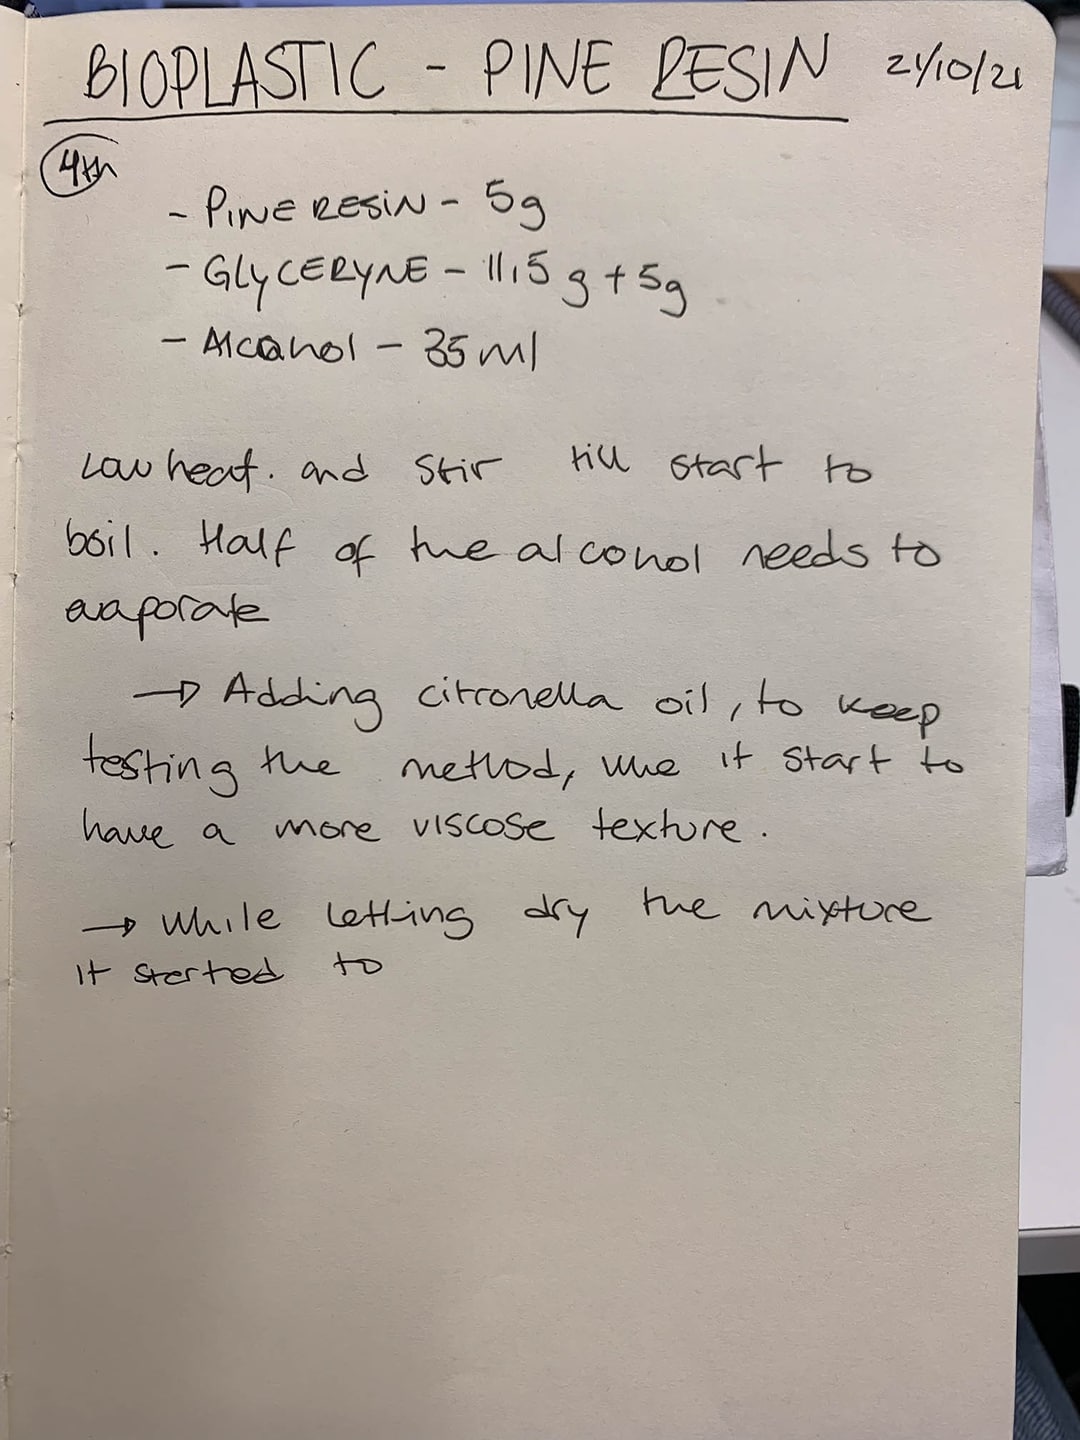 BIOPLASTIC - PINE RESIN 21/10/21
4th
- PINE RESIN - 5g
- GLYCERYNE - 11,5 g + 5g
- Alcohol - 35 ml
Low heat. and stir till start to
boil. Half of the alcohol needs to
evaporate
→ Adding citronella oil, to keep
testing the method, it start to
have a more viscose texture.
→ While letting dry the mixture
it started to